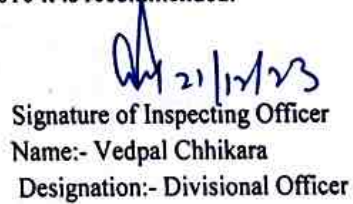 21/12/23
Signature of Inspecting Officer
Name:- Vedpal Chhikara
Designation:- Divisional Officer